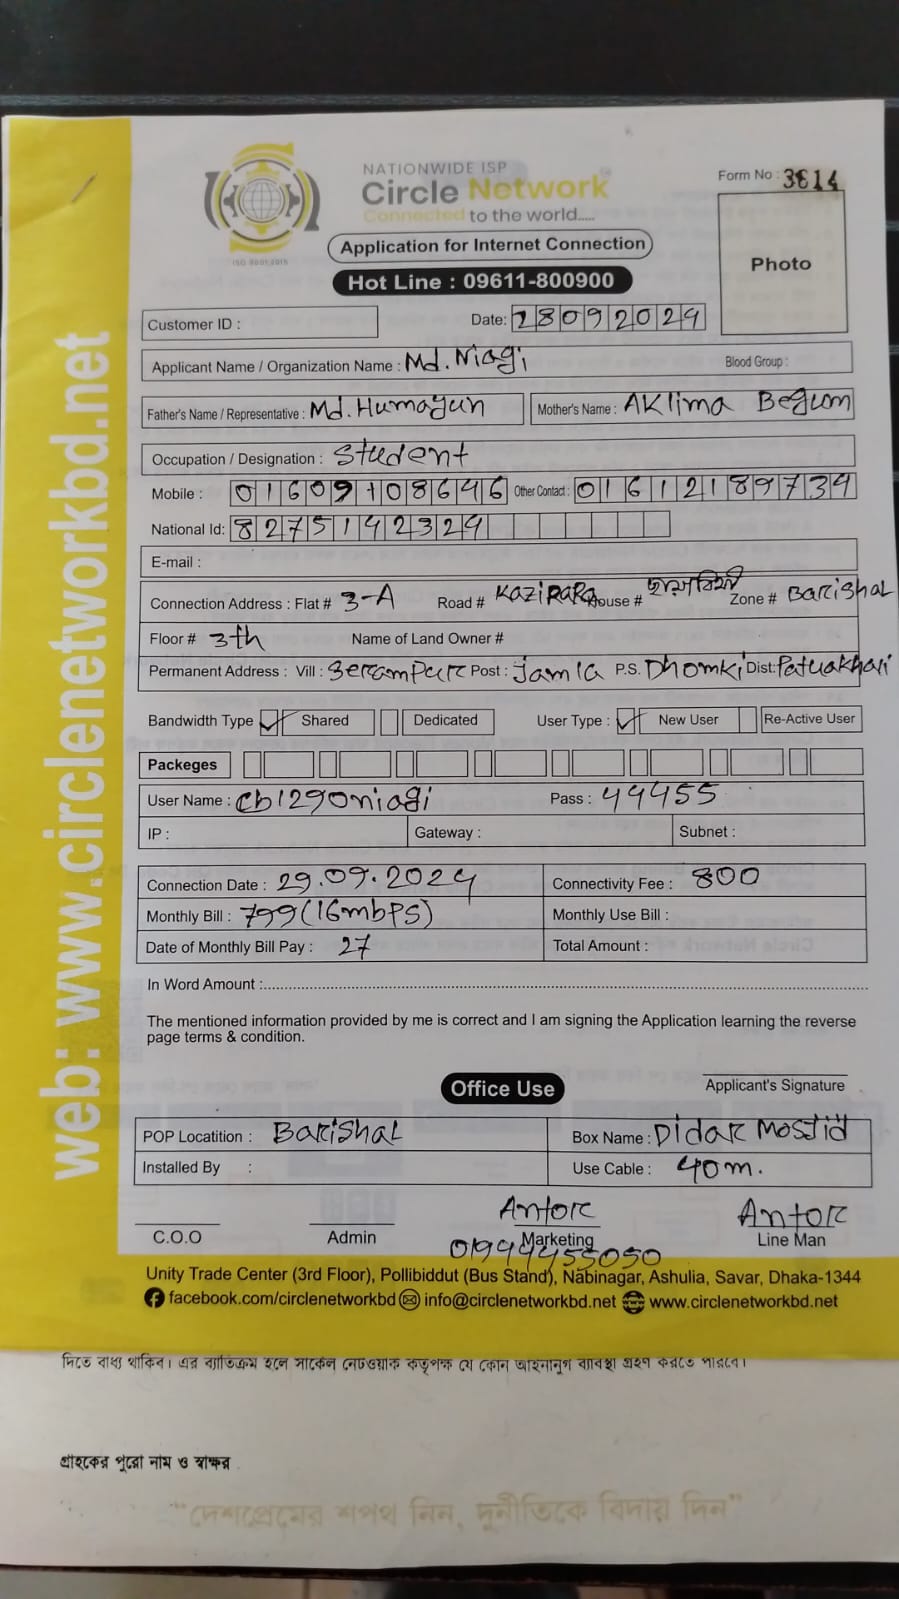 NATIONWIDE ISP
Circle Network
Connected to the world.....
Form No : 3614
Application for Internet Connection
Hot Line : 09611-800900
Photo
ISO 9001:2015
web: www.circlenetworkbd.net
Customer ID :
Date: 28092024
Applicant Name / Organization Name : Md. Niagi
Blood Group :
Father's Name / Representative : Md. Humayun
Mother's Name : AKlima Begum
Occupation / Designation : Student
Mobile : 01609108646 Other Contact : 01612189734
National Id: 8275142324
E-mail :
Connection Address : Flat # 3-A Road # Kazipara House # Zone # Barishal
Floor # 3th Name of Land Owner #
Permanent Address : Vill : Serampur Post : Jamla P.S. Dhomki Dist: Patuakhali
Bandwidth Type Shared Dedicated User Type : New User Re-Active User
Packeges
User Name : cb1290niagi Pass : 44455
IP : Gateway : Subnet :
Connection Date : 29.09.2024 Connectivity Fee : 800
Monthly Bill : 799 (16mbps) Monthly Use Bill :
Date of Monthly Bill Pay : 27 Total Amount :
In Word Amount :
The mentioned information provided by me is correct and I am signing the Application learning the reverse
page terms & condition.
Office Use
Applicant's Signature
POP Locatition : Barishal Box Name : Didar Mosjid
Installed By : Use Cable : 40m.
Antor Antor
C.O.O Admin Marketing Line Man
01944455050
Unity Trade Center (3rd Floor), Pollibiddut (Bus Stand), Nabinagar, Ashulia, Savar, Dhaka-1344
facebook.com/circlenetworkbd info@circlenetworkbd.net www.circlenetworkbd.net
দিতে বাধ্য থাকিব। এর ব্যতিক্রম হলে সার্কেল নেটওয়াক কতৃপক্ষ যে কোন আইনানুগ ব্যাবস্থা গ্রহণ করতে পারবে।
গ্রাহকের পুরো নাম ও স্বাক্ষর
"দেশপ্রেমের শপথ নিন, দুর্নীতিকে বিদায় দিন"